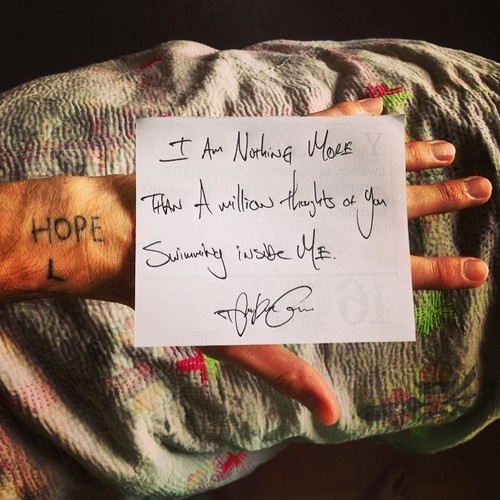 I Am Nothing More
Than A million thoughts of you
Swimming inside Me.
HOPE
Y
16